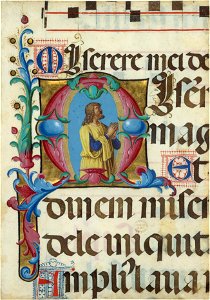 Miserere mei de
Miser
mag
Et
dinem miser
dele iniquit
Ampli' laua